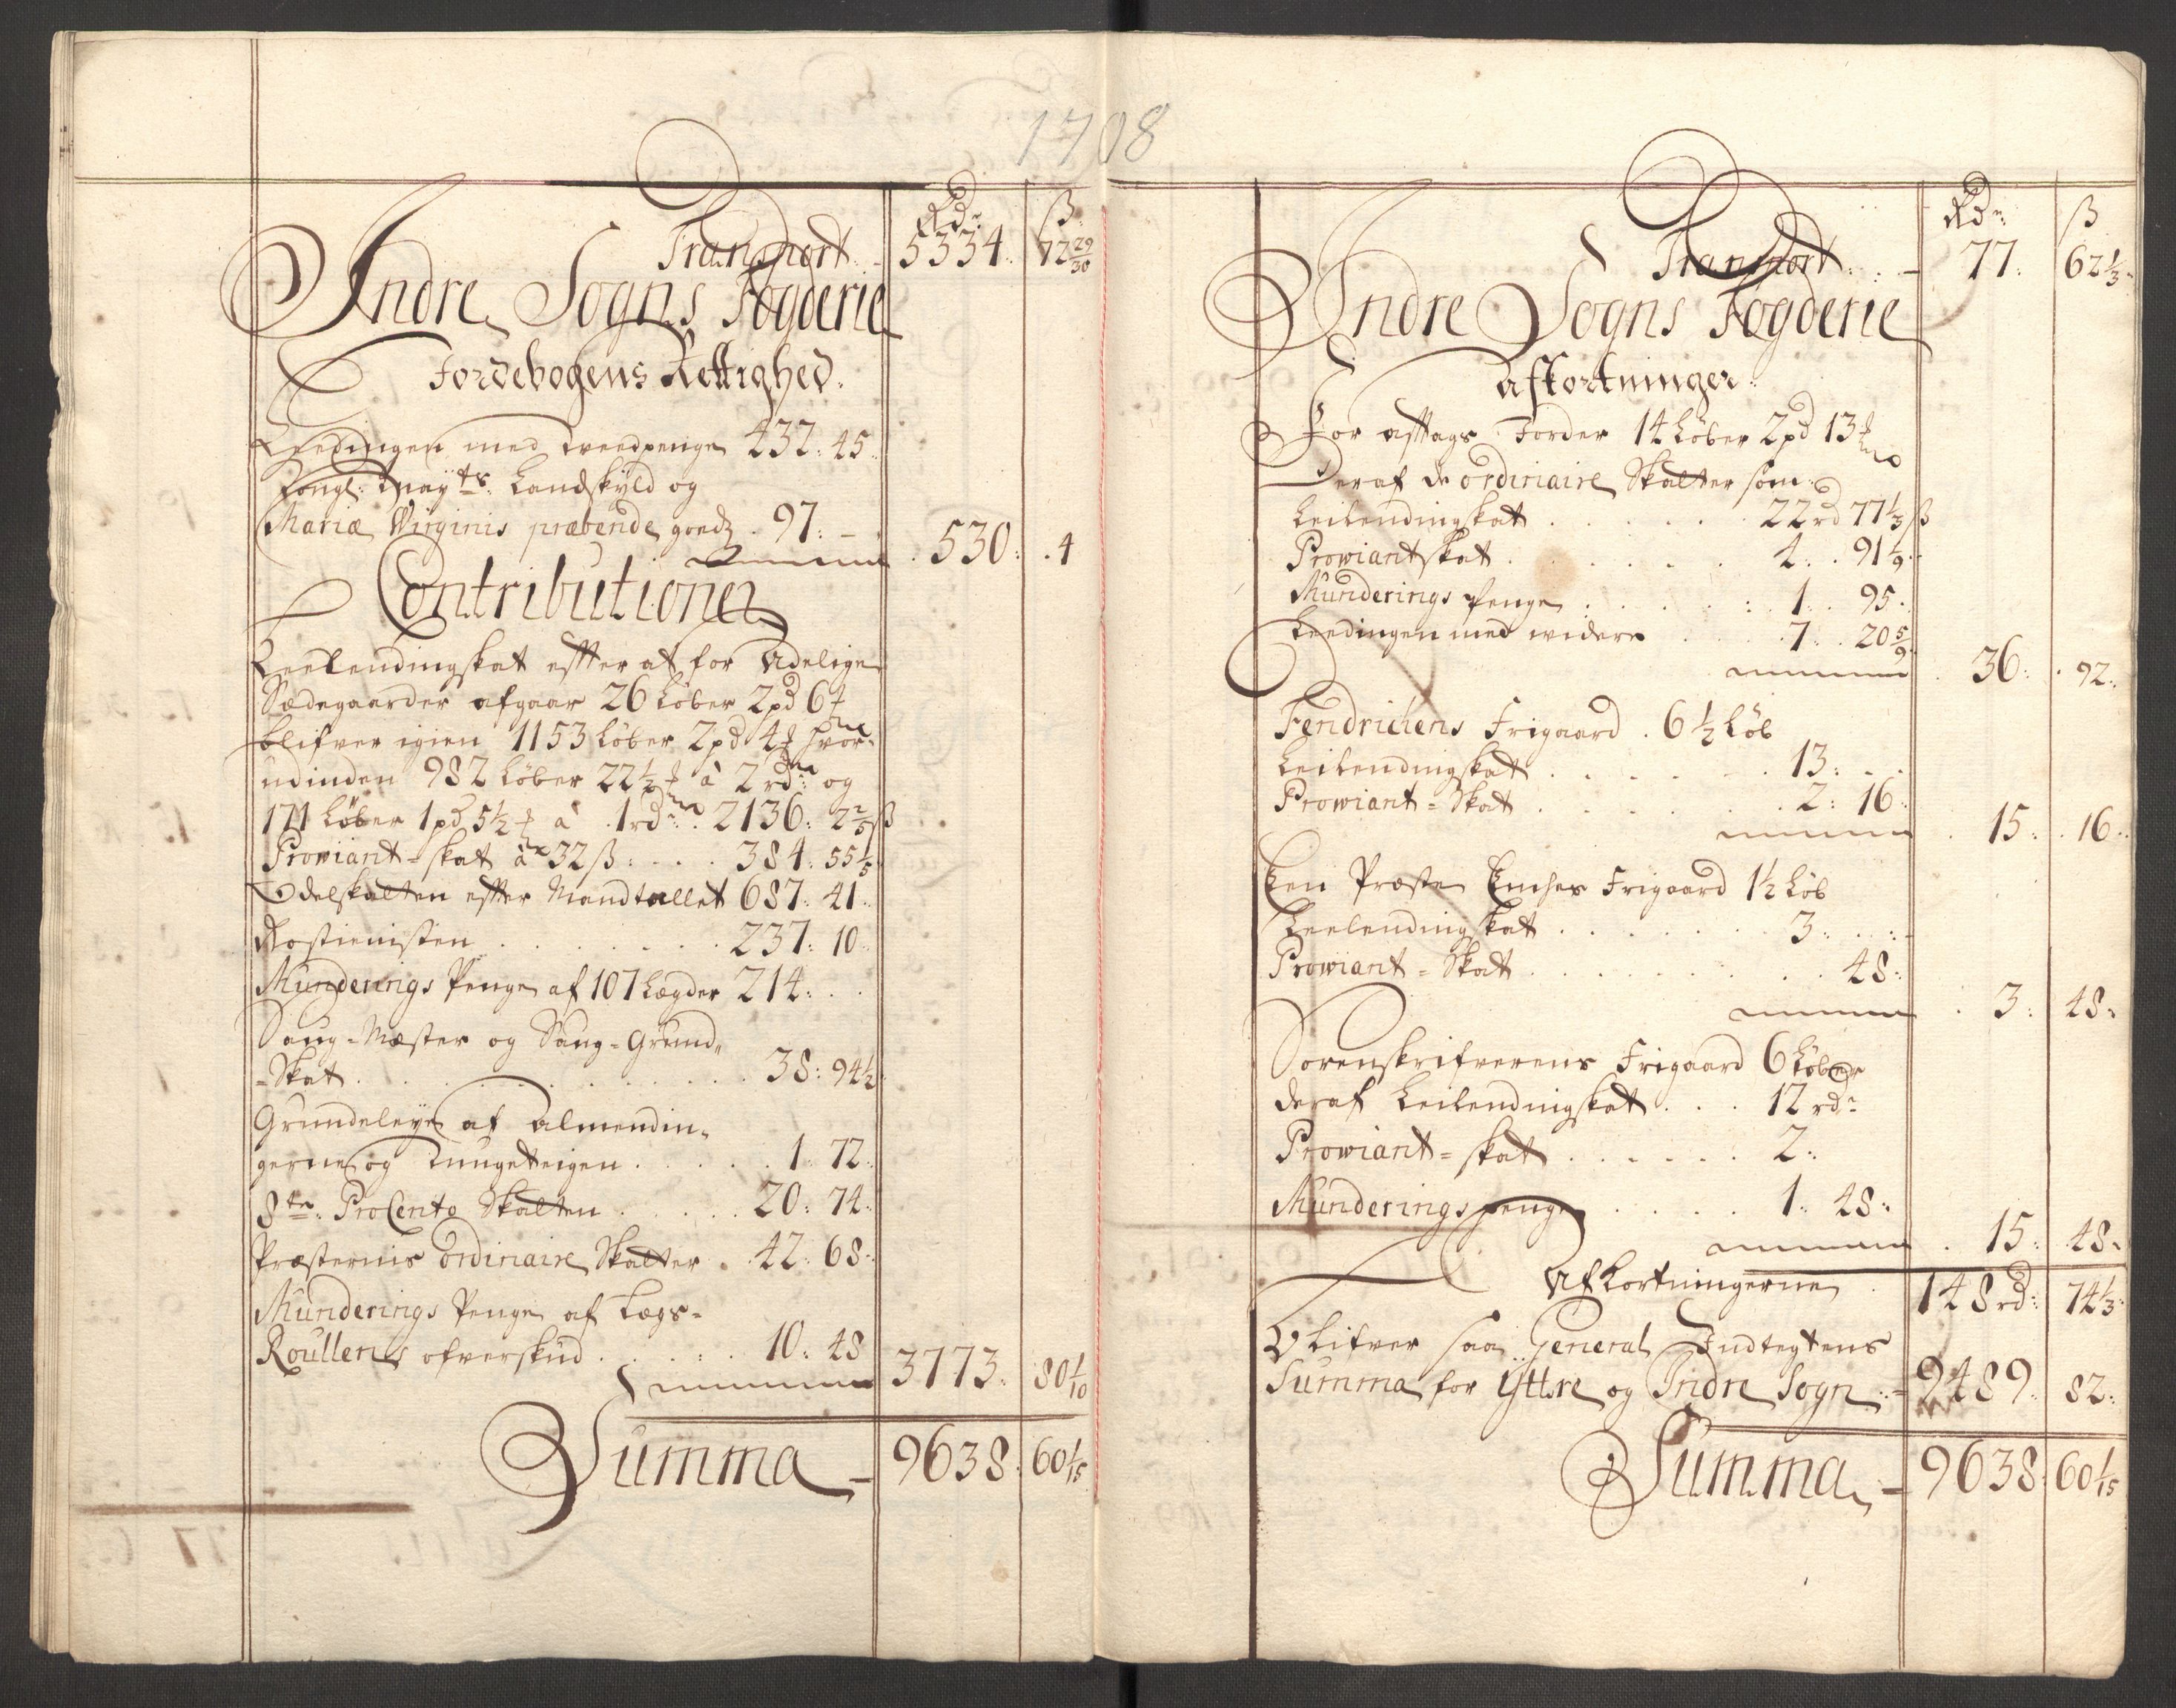 1708
Rdr ß
Transport 5334. 72 29/30
Indre Sogns Fogderie
Jordebogens Rettighed.
Leedingen med tveedpenge 432. 45.
Kongl: Mayts. Landskyld og
Mariæ Virginis præbende goedz. 97. –
530. 4
Contributioner
Leelendingskat effter at for Adelige
Sædegaarder afgaar 26 Løber 2pd 6
blifver igien 1153 Løber 2pd 4 hvor-
udinden 982 Løber 22½ à 2 rdr og
171 Løber 1pd 5½ à 1rdr 2136: 2 2/5 ß
Proviant-skat à 32 ß 384. 55 1/5
Odelskatten effter Mandtallet 687. 41.
Rostienisten 237. 10.
Munderings Penge af 107 Lægder 214.
Saug-Mæster og Saug-Grund-
-Skat 38: 94½
Grundeleye af Almendin-
gerne og Tungeteigen 1. 72.
8te ProCento Skatten 20. 74.
Præsternis ordinaire Skatter. 42. 68.
Munderings Penge af Legs-
Roullens ofverskud 10. 48
3773. 80 1/10
Summa – 9638. 60 1/15
Rdr ß
Transport – 77. 62 1/3
Indre Sogns Fogderie
Afkortninger.
For afftags Jorder 14 Løber 2pd 13
Deraf de ordinaire Skatter som
Leilendingskat 22rd 77 1/3 ß
Proviantskat 4. 91 1/9
Munderings Penge 1. 95.
Leedingen med videre 7. 20 5/9
36. 92.
Fendrichens Frigaard. 6½ Løb
Leilendingskat 13.
Proviant-Skat 2. 16.
15. 16.
Een Præste Enches Frigaard 1½ Løb
Leelendingskat 3.
Proviant-Skat 48.
3. 48.
Sorenskrifverens Frigaard 6 Løber
deraf Leilendingskat 12 rdr
Proviant-skat 2.
Munderingspenge 1. 48.
15. 48.
Afkortningerne 148rd. 74 1/3
Blifver saa General Indtegtens
Summa for Yttre og Indre Sogn – 9489. 82.
Summa – 9638 60 1/15